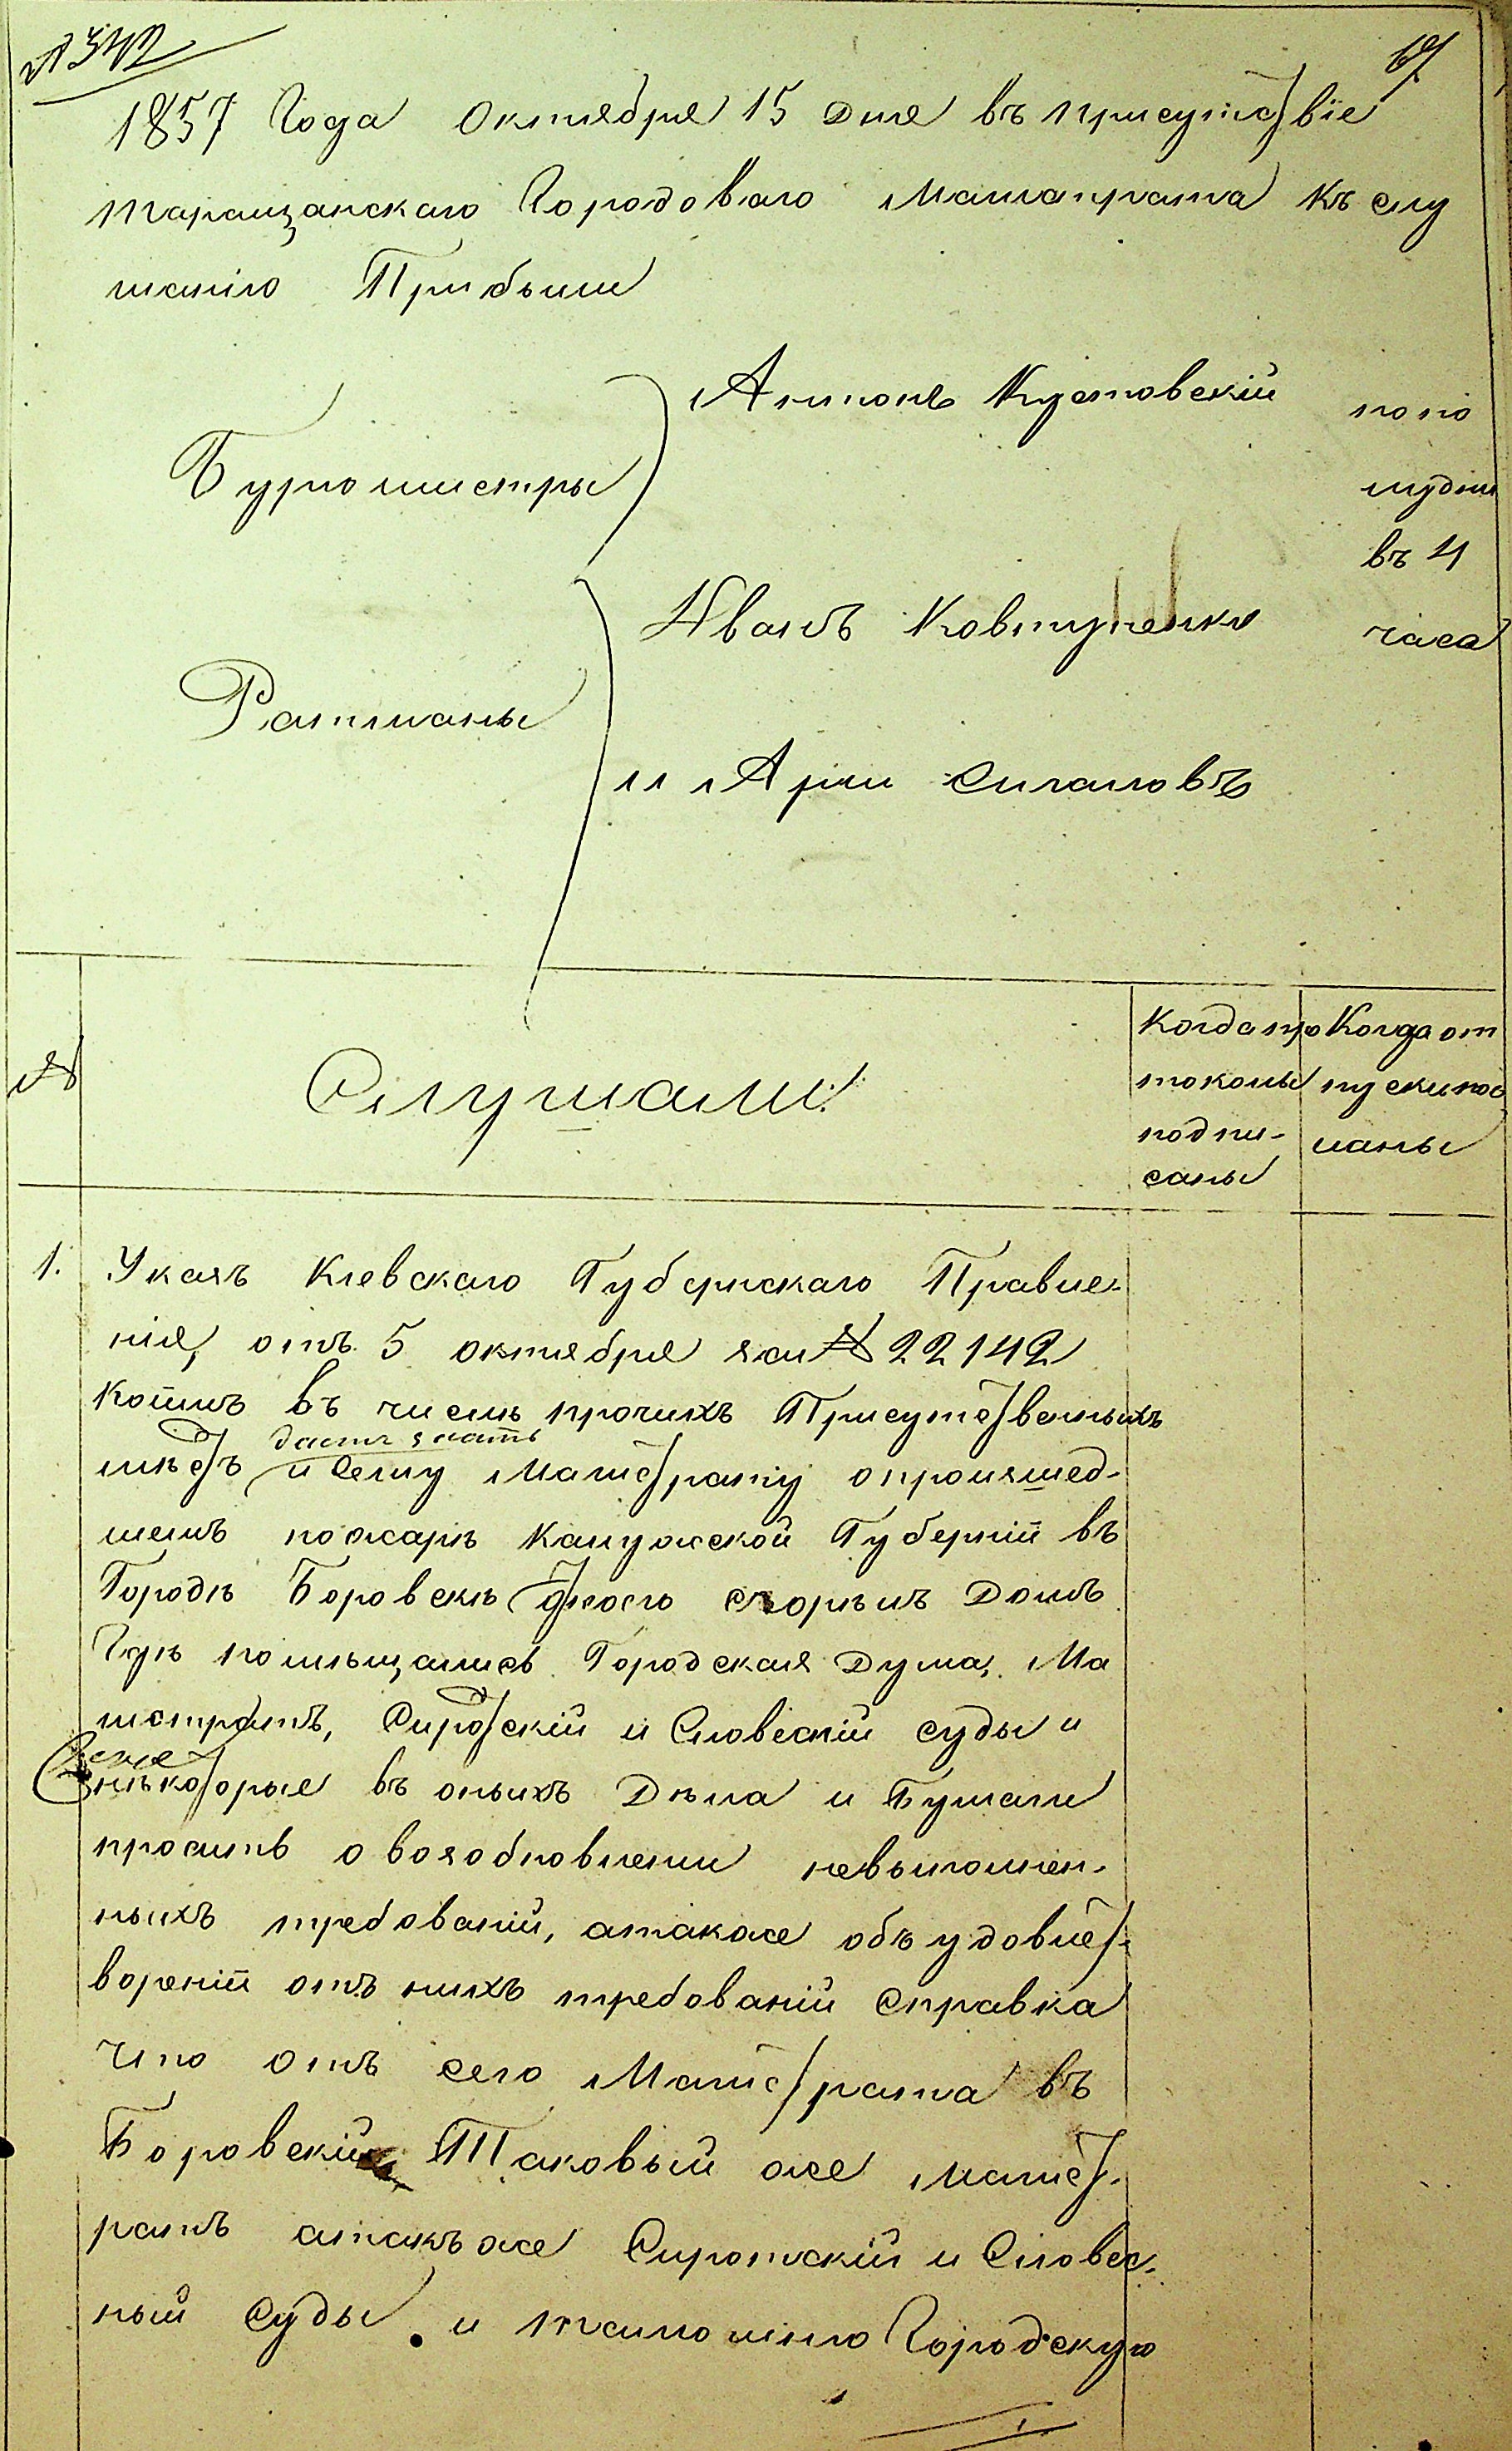 № 342
67
1857 Года Октября 15 Дня въ присутствіе
таращанского Городоваго Магистрата къ слу
шанію Прибыли
Бургомистры
Антонъ Кустовскій
Ратманы
Иванъ Ковтуненко
и Арш Сигаловъ
попо
лудни
въ 4
часа
№
Слушали:
Когда про
токолы
подпи-
саны
Когда от
пуски пос
ланы
1. Указъ Кіевскаго Губернскаго Правле-
нія, отъ 5 октября за № 22142
коимъ въ числѣ прочихъ Присутственныхъ
мѣстъ дастъ знать и Сему Магистрату опроизшед-
шемъ пожарѣ Калужской Губерній въ
Городѣ Боровскѣ отчего сгорѣлъ Домъ
Гдѣ помѣщались Городская Дума, Ма
гистратъ, Сиротскій и Словесній суды и
нѣкоторые въ оныхъ Дѣла и Бумаги
проситъ о возобновлении невыполнен-
ныхъ требованій, атакже объ удовлет-
вореній отъ нихъ требованій Справка
что отъ сего Магистрата въ
Боровскій Таковый же магист-
ратъ атакъ же Сиротскій и Словес-
ный Суды и тамошнюю Городскую